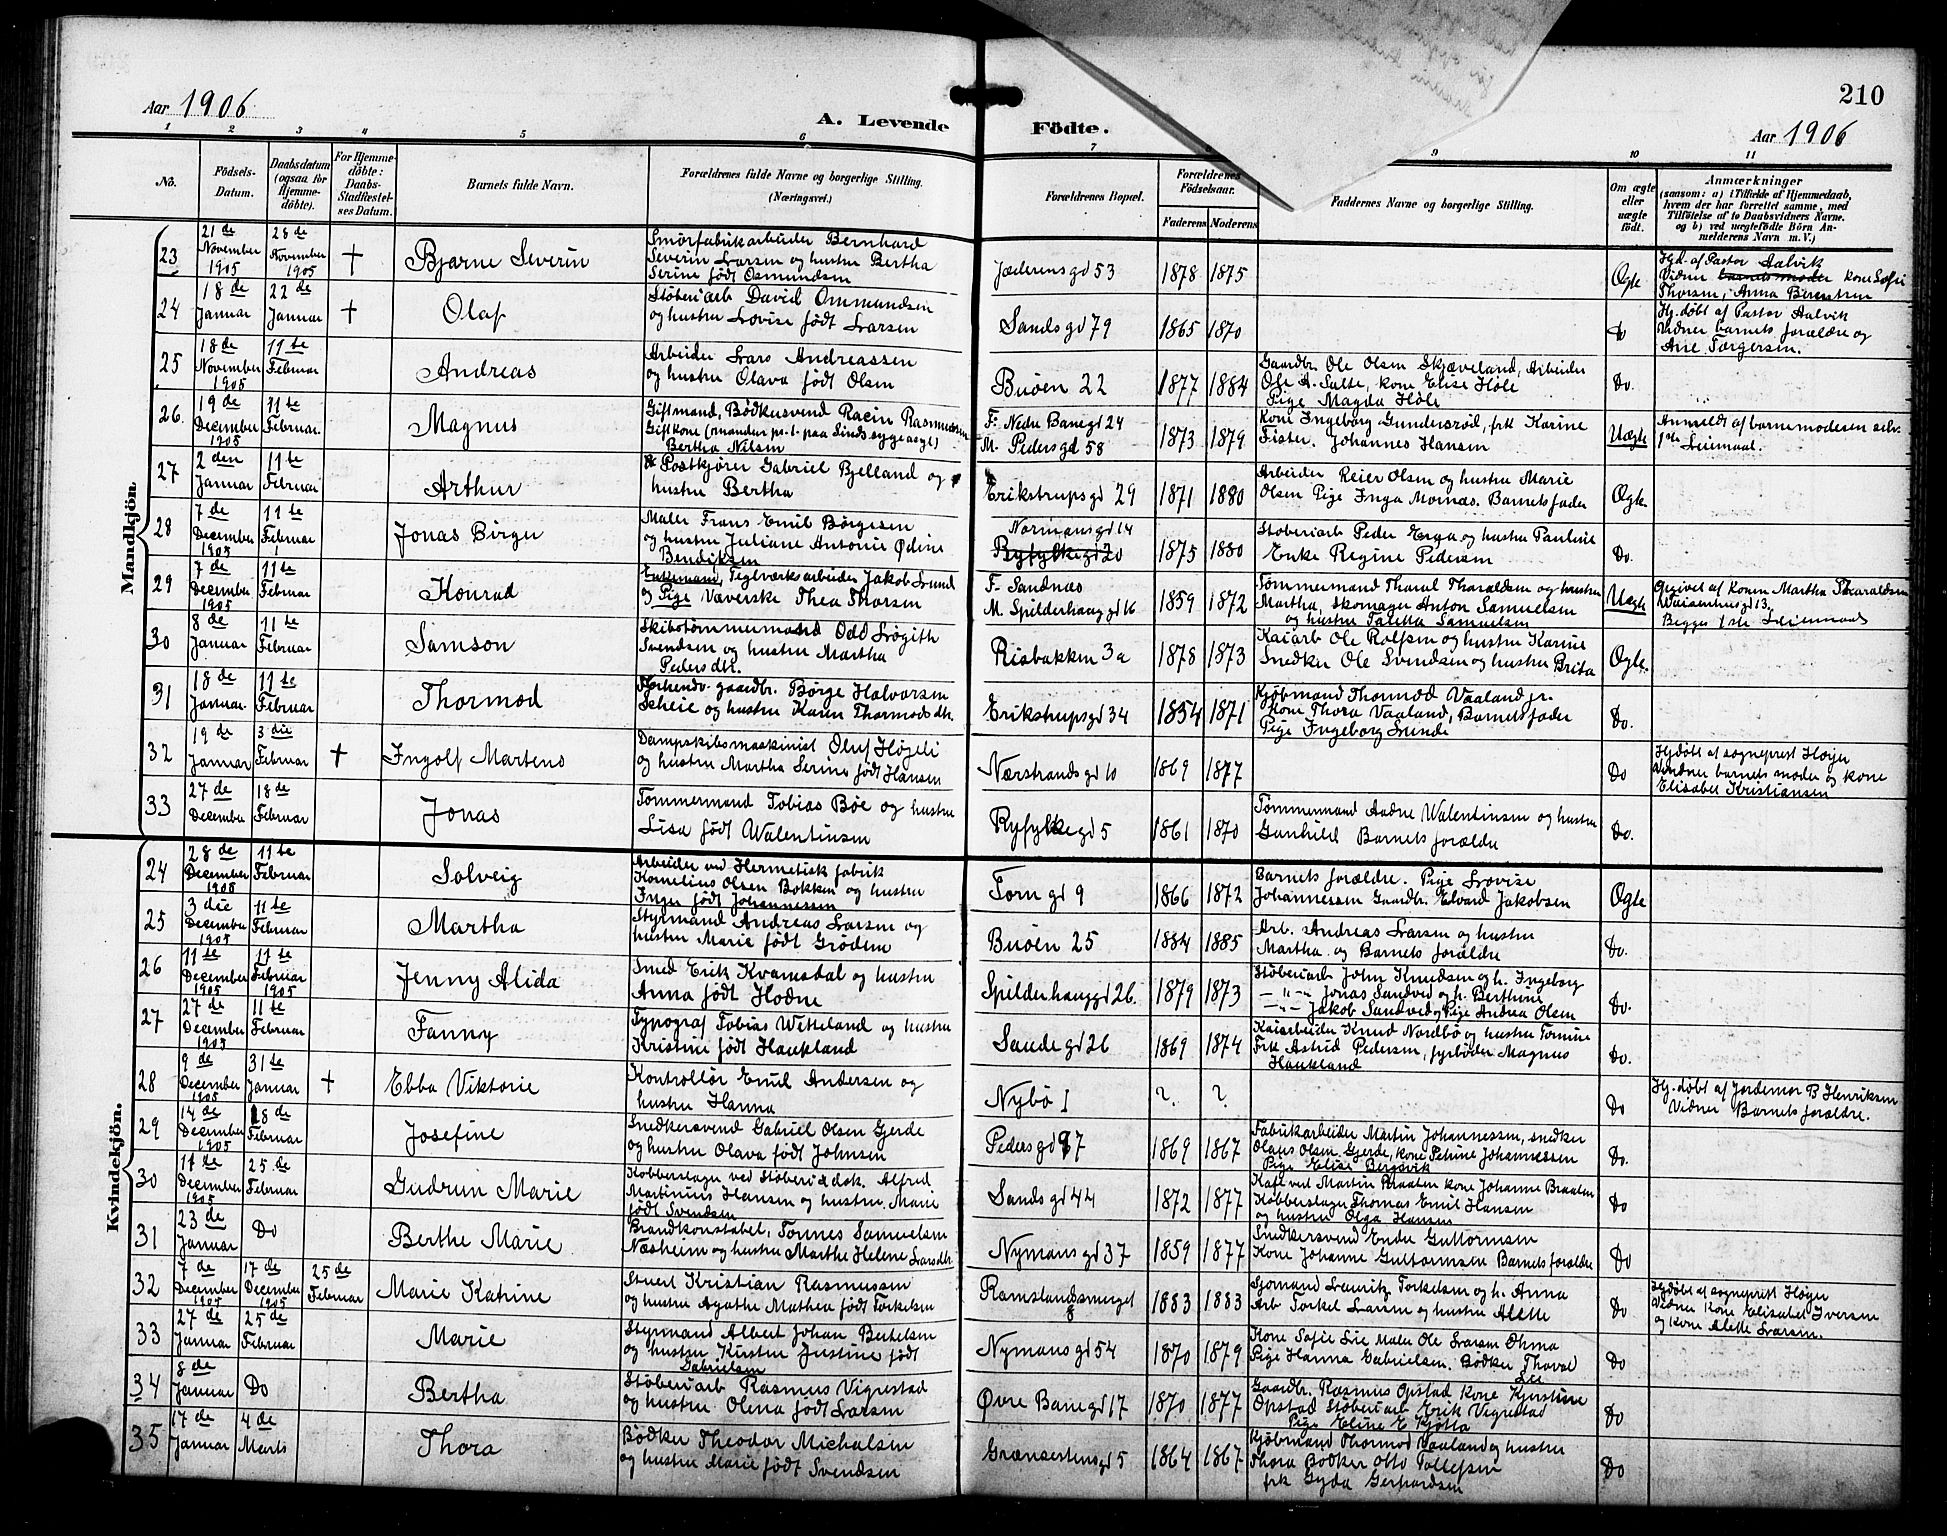 Aar 1906
A. Levende
Födte.
210
Aar 1906
1 2 3 4 5 6 7 9 10 11
No.
Födsels-
Datum.
Daabsdatum
(ogsaa for
Hjemme-
döbte).
For Hjemme-
döbte:
Daabs-
Stadfæstel-
ses Datum.
Barnets fulde Navn.
Forældrenes fulde Navne og borgerlige Stilling.
(Næringsvei.)
Forældrenes Bopæl.
Forældrenes
Födselsaar.
Faderens Moderens
Faddernes Navne og borgerlige Stilling.
Om ægte
eller
uægte
födt.
Anmærkninger
(saasom: a) i Tilfælde af Hjemmedaab,
hvem der har forrettet samme, med
Tilföielse af to Daabsvidners Navne.
og b) ved uægtefödte Börn An-
melderens Navn m. V.)
Mandkjön.
23
21 de
November
1905
28 de
November
1905
†
Bjarne Severin
Smörfabrikarbeider Bernhard
Severin Larsen og hustru Bertha
Serine födt Osmundsen
Jæderensgd 53
1878 1875
Ægte
Hjd. af Pastor Aalvik
Vidner barnets moder kone Sofie
Thorsen, Anna
24
18 de
Januar
22 de
Januar
†
Olaf
Støberiarb David Ommundsen
og hustru Lovise födt Larsen
Sandsgd 79
1865 1870
Do
Hj. døbt af Pastor Aalvik
Vidner barnets forældre og
Ane Torgersen.
25
18 de
November
1905
11 te
Februar
Andreas
Arbeider Lars Andreassen
og hustru Olava födt Olsen
Buöen 22
1877 1884
Gaardbr. Ole Olsen Skjæveland, Arbeider
Ole A. Salte, kone Elise Hole
Pige Magda Hole
Do.
26.
19 de
December
1905
11 te
Februar.
Magnus
Giftmand, Bödkersvend Racin Rasmussen
Giftkone (manden pr. t. paa Sindssygeasyl)
Bertha Nilsen
F. Nedre Banegd 24
M. Pedersgd 58
1873 1879
Kone Ingeborg Gundersrød, frk Karine
Fister. Johannes Hansen
Uægte
Anmeldt af barnemoderen selv.
1ste Leiemaal.
27
2 den
Januar
11 te
Februar
Arthur
Postkjører Gabriel Bjelland og
hustru Bertha
Erikstrupsgd 29
1871 1880
Arbeider Reier Olsen og hustru Marie
Olsen Pige Inga Moenas. Barnets fader
Ægte.
28
7 de
December
1905
11 te
Februar
Jonas Birger
Maler Frans Emil Børgesen
og hustru Juliane Antonie Ødine
Bendiksen
Normansgd 14
Ryfylkegd 20
1875 1880
Støberiarb Peder Enga og hustru Pauline
Enke Regine Pedersen
Do.
29
7 de
December
1905
11 te
Februar
Konrad
Enkemand, Teglværksarbeider Jakob Lund
og Pige Væverske Thea Thorsen
F. Sandnæs
M. Spilderhauggd 16
1859 1872
Tømmermand Tharal Tharaldsen og hustru
Martha, Skomager Anton Samuelsen
og hustru Taletta Samuelsen
Uægte
Opgivet af Konen Martha Tharaldsen
Waisenhusgd 13.
Begges 1ste Leiemaal
30
8 de
Januar
11 te
Februar
Samson
Skibstømmermand Odd Løgith
Svendsen og hustru Martha
Pedersdtr.
Risbakken 3a
1878 1873
Kaiarb Ole Rolfsen og hustru Karine
Snedker Ole Svendsen og hustru Brita
Ægte.
31
18 de
Januar.
11 te
Februar
Thormod
gaardbr. Børge Halvorsen
Scheie og hustru Karen Thormodsdtr.
Erikstrupsgd 34
1854 1871
Kjøbmand Thormod Vaaland jr.
Kone Thora Vaaland, Barnets fader
Pige Ingeborg Lunde
Do.
32
19 de
Januar
3 die
Februar
†
Ingolf Martens
Dampskibsmaskinist Oluf Højeli
og hustru Martha Serine født Hansen
Nærstrandsgd 10
1869 1877
Do
Hjdøbt af sogneprest Höyer
Vidner barnets moder og kone
Elisabet Kristiansen
33
27 de
December
18 de
Februar
Jonas
Tømmermand Tobias Bøe og hustru
Lisa født Valentinsen
Ryfylkegd 5
1861 1870
Tømmermand Aadne Valentinsen og hustru
Gunhild Barnets forældre
Do.
Kvindekjön.
24
28 de
December
1905
11 te
Februar
Solveig
Arbeider ved Hermetisk fabrik
Kornelius Olsen Bokken og hustru
Inger født Johannessen
Torngd 9
1866 1872
Barnets forældre. Pige Lovise
Johannessen Gaardbr. Edvard Jakobsen
Ægte
25
3 die
December
1905
11 te
Februar
Martha
Styrmand Andreas Larsen og
hustru Marie født Grødem
Buøen 25
1884 1885
Arb. Andreas Larsen og hustru
Martha og Barnets forældre
Do.
26
11 te
December
1905
11 te
Februar
1905
Jenny Alida
Smed Erik Kvamsdal og hustru
Anna født Hodne
Spilderhauggd 26.
1879 1873
Støberiarb John Knudsen og h. Ingeborg
— " — Jonas Sandved og h. Berthine
— " — Jakob Sandved og Pige Andrea Olsen
Do.
27
27 de
December
1905
11 te
Februar
Fanny
Typograf Tobias Wetteland og hustru
Kristine født Haukland
Sandegd 26
1869 1874
Kaiarbeider Knud Nordbø og hustru Tomine
Frk Astrid Pedersen, fyrbøder Magnus
Haukland
Do.
28
9 de
December
1905
31 te
Januar
†
Ebba Viktorie
Kontrollør Emil Andersen og
hustru Hanna
Nybø 1
? ?
Do
Hj. døbt af Jordemor B Henriksen
Vidner Barnets forældre.
29
14 de
December
1905
18 de
Februar
Josefine
Snedkersvend Gabriel Olsen Gjerde
og hustru Olava født Johnsen
Pedersgd 97
1869 1867
Fabrikarbeider Martin Johannessen, snedker
Olaus Olsen Gjerde, kone Petrine Johannessen
Pige Elise Bergsvik
Do.
30
11 te
December
1905
25 de
Februar
Gudrun Marie
Kobberslager ved Støberi & dok. Alfred
Martinius Hansen og hustru Marie
født Svendsen
Sandsgd 44
1872 1877
Kafevert Martin Braaten kone Johanne Braaten
Kobberslager Thomas Emil Hansen
og hustru Olga Hansen
Do
31
23 de
Januar
Do
Berthe Marie
Brandkonstabel. Tønnes Samuelsen
Næsheim og hustru Marthe Helene Larsdtr.
Nymansgd 37
1859 1877
Snedkersvend Endre Guttormsen
Kone Johanne Guttormsen Barnets forældre
Do
32
7 de
December
1905
17 de
December
1905
25 de
Februar
Marie Katrine
Stuert Kristian Rasmussen
og hustru Agathe Mathea født Torkelsen
Ramslandssmuget
8
1883 1883
Sjømand Lauritz Torkelsen og h. Anna
Arb Torkel Larsen og hustru Alette
Do
Hjdøbt af sogneprest Höyer
Vidner Kone Elisabet Iversen
og Kone Alette Larsen.
33
27 de
Januar
25 de
Februar
Marie
Styrmand Albert Johan Bertelsen
og hustru Kirsten Justine født
Gabrielsen
Nymansgd 54
1870 1879
Kone Sofie Lie Maler Ole Larsen Ohma
Pige Hanna Gabrielsen. Bødker Thoral
Lie
Do
34
8 de
Januar
Do
Bertha
Støberiarb Rasmus Vigrestad
og hustru Olena født Larsen
Øvre Banegd 17
1870 1877
Gaardbr. Rasmus Opstad kone Kirstine
Opstad Støberiarb Erik Vigrestad
Pige Eline E Kjøtta
Do
35
17 de
Januar
4 de
Marts
Thora
Bødker Theodor Michalsen
og hustru Marie født Svendsen
Grænsestensgd 5
1864 1867
Kjøbmand Thormod Vaaland og hustru
Thora Bødker Otto Tollefsen
frk Gyda Gerhardsen
Do